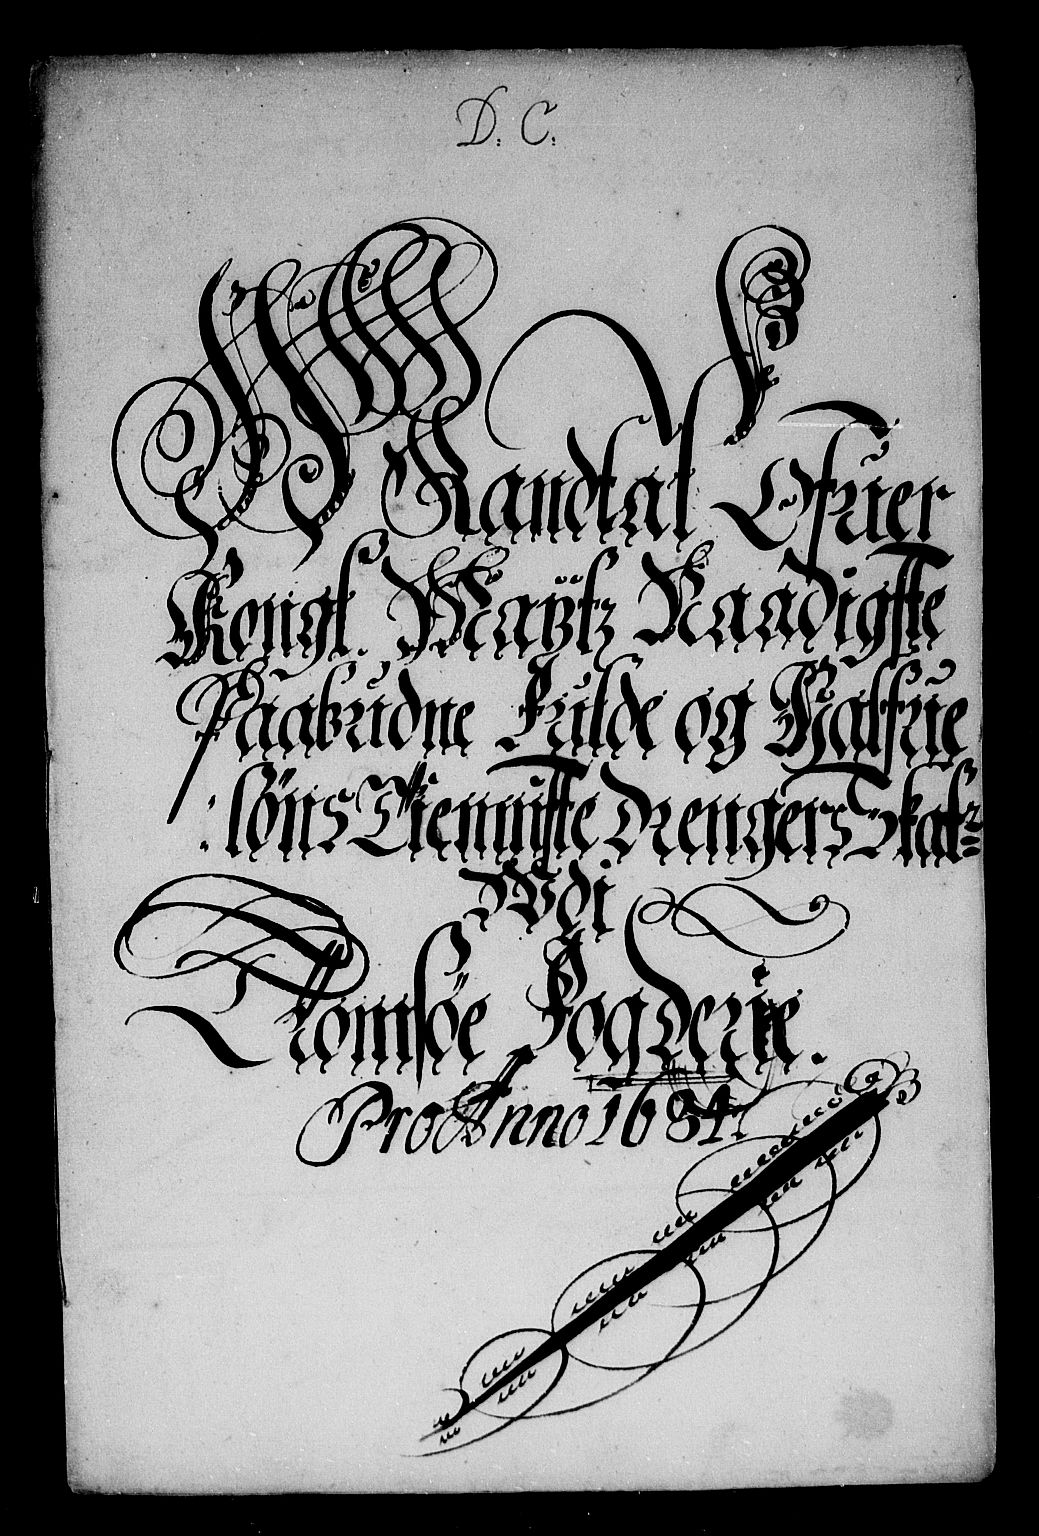 D: C:
Mandtal Ofuer
Kongl. Maÿtz Naadigste
Paabudne Fulde og Halfue
: löns Tienniste drengers Skat
Udi
Tromsöe Fogderie.
Pro Anno 1684.